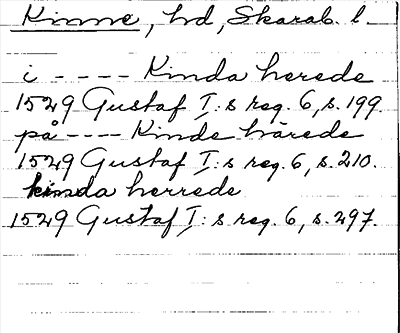 Kinne, hd, Skarab. l.
i - - - - Kinda herede
1529 Gustaf I:s reg. 6, s. 199.
på - - - - Kinde härede
1529 Gustaf I:s reg. 6, s. 210.
kinda herrede
1529 Gustaf I:s reg. 6, s. 297.